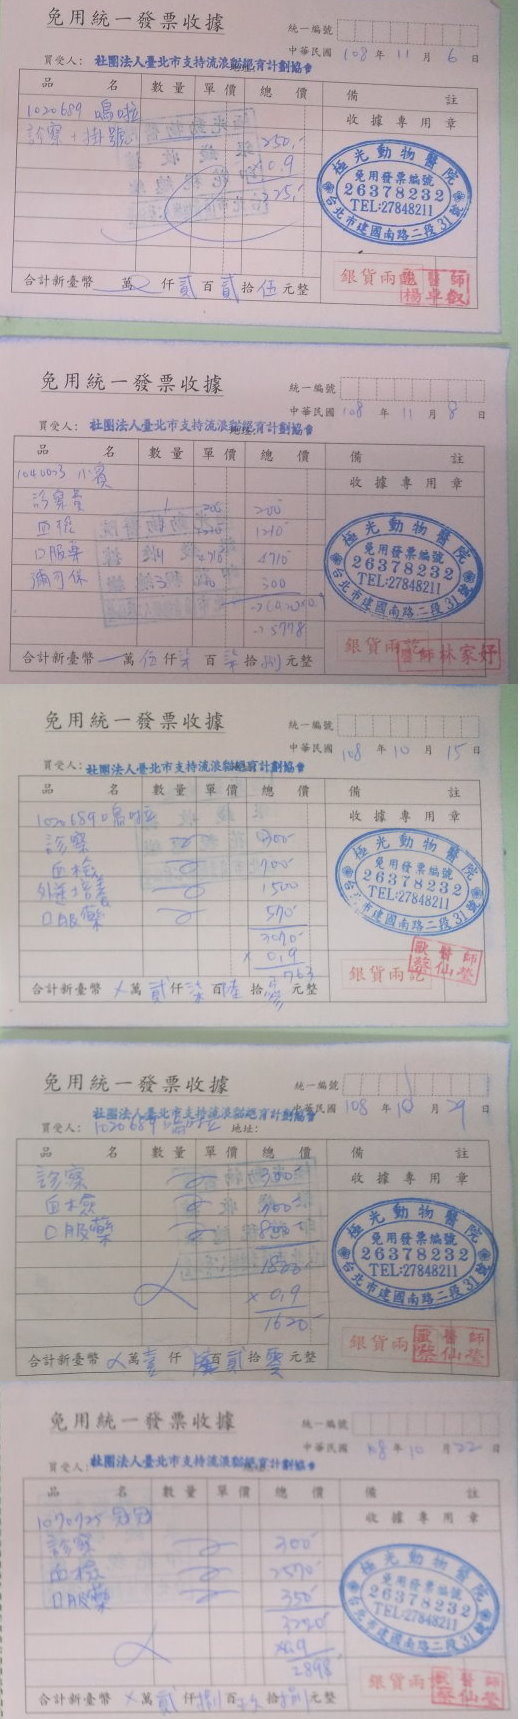 免用統一發票收據
統一編號
中華民國 108 年 11 月 6 日
買受人: 社團法人臺北市支持流浪貓絕育計劃協會
品 名 數量 單價 總價 備 註
1020689 嗚啦 收據專用章
診察+掛號 250
0.9
225
極光動物醫院
免用發票編號
26378232
TEL:27848211
台北市建國南路二段31號
銀貨兩訖
醫師
楊卓叡
合計新臺幣 萬 仟 貳 百 貳 拾 伍 元整
免用統一發票收據
統一編號
中華民國 108 年 11 月 8 日
買受人: 社團法人臺北市支持流浪貓絕育計劃協會
品 名 數量 單價 總價 備 註
1040023 小賓 收據專用章
診察費 1 200 200
血檢 1210 1210
口服藥 14 4710
彌可保 3 300
→5778
極光動物醫院
免用發票編號
26378232
TEL:27848211
台北市建國南路二段31號
銀貨兩訖
醫師林家妤
合計新臺幣 萬 伍 仟 柒 百 柒 拾 捌 元整
免用統一發票收據
統一編號
中華民國 108 年 10 月 15 日
買受人: 社團法人臺北市支持流浪貓絕育計劃協會
品 名 數量 單價 總價 備 註
1020689 嗚啦 收據專用章
診察 300
血檢 700
外送培養 1500
口服藥 570
3070
x 0.9
2763
極光動物醫院
免用發票編號
26378232
TEL:27848211
台北市建國南路二段31號
銀貨兩訖
獸醫師
蔡仙瑩
合計新臺幣 x 萬 貳 仟 柒 百 陸 拾 參 元整
免用統一發票收據
統一編號
中華民國 108 年 10 月 29 日
社團法人臺北市支持流浪貓絕育計劃協會
買受人: 1020689 嗚啦 地址:
品 名 數量 單價 總價 備 註
診察 300 收據專用章
血檢 700
口服藥 800
1800
x 0.9
1620
極光動物醫院
免用發票編號
26378232
TEL:27848211
台北市建國南路二段31號
銀貨兩訖
獸醫師
蔡仙瑩
合計新臺幣 萬 壹 仟 陸 百 貳 拾 零 元整
免用統一發票收據
統一編號
中華民國 108 年 10 月 22 日
買受人: 社團法人臺北市支持流浪貓絕育計劃協會
品 名 數量 單價 總價 備 註
1070725 冠冠 收據專用章
診察 300
血檢 2570
口服藥 350
3220
x0.9
2898
極光動物醫院
免用發票編號
26378232
TEL:27848211
台北市建國南路二段31號
銀貨兩訖
獸醫師
蔡仙瑩
合計新臺幣 x 萬 貳 仟 捌 百 玖 拾 捌 元整